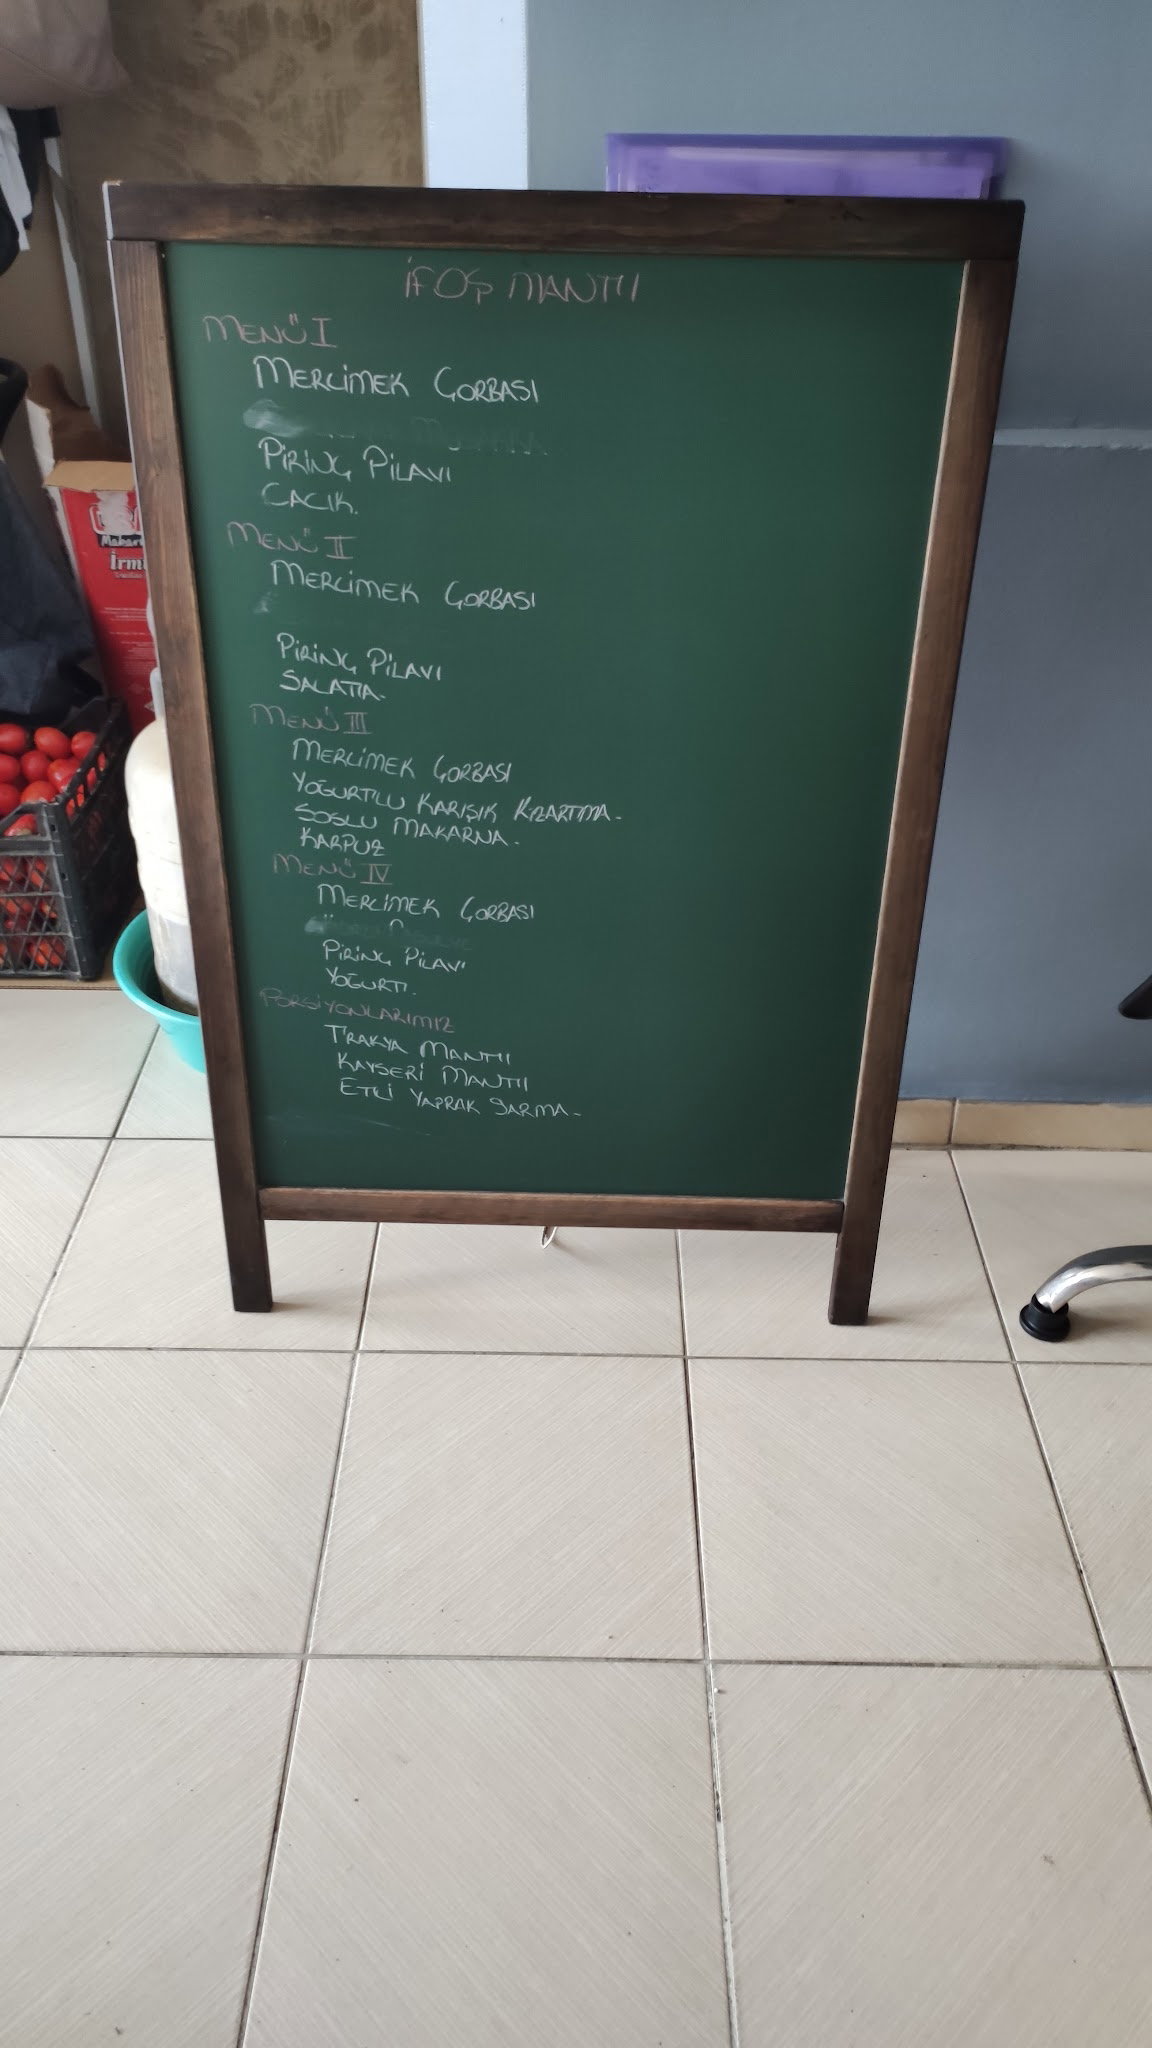 İFOŞ MANTI
MENÜ I
MERCİMEK ÇORBASI
PİRİNÇ PİLAVI
CACIK.
MENÜ II
MERCİMEK ÇORBASI
PİRİNÇ PİLAVI
SALATA.
MENÜ III
MERCİMEK ÇORBASI
YOĞURTLU KARIŞIK KIZARTMA.
SOSLU MAKARNA.
KARPUZ
MENÜ IV
MERCİMEK ÇORBASI
PİRİNÇ PİLAVI
YOĞURT.
PORSİYONLARIMIZ
TRAKYA MANTI
KAYSERİ MANTI
ETLİ YAPRAK SARMA.
İrmi